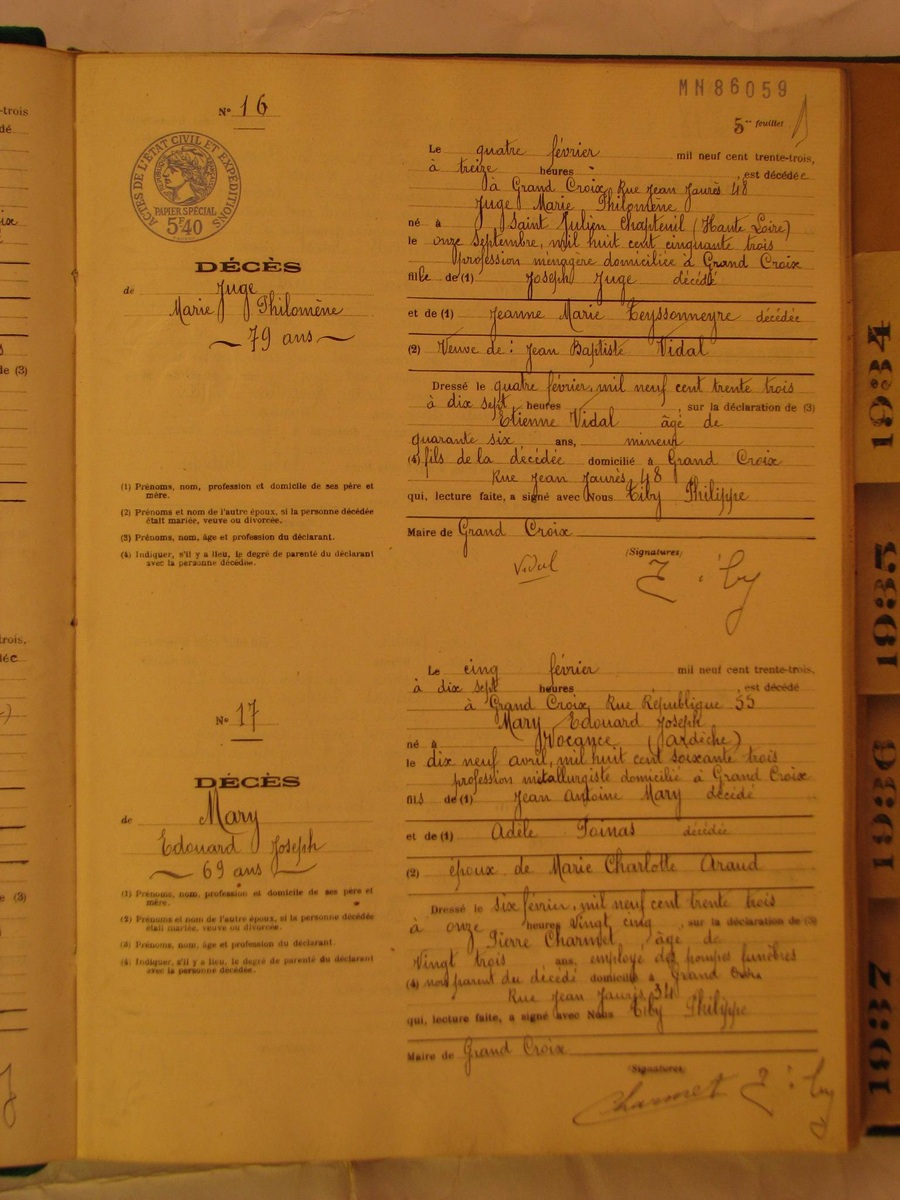 MN86059
5me feuillet
N° 16
ACTES DE L'ÉTAT CIVIL ET EXPÉDITIONS
PAPIER SPÉCIAL
5F40
DÉCÈS
de Juge
Marie Philomène
79 ans
(1) Prénoms, nom, profession et domicile de ses père et
mère.
(2) Prénoms et nom de l'autre époux, si la personne décédée
était mariée, veuve ou divorcée.
(3) Prénoms, nom, âge et profession du déclarant.
(4) Indiquer, s'il y a lieu, le degré de parenté du déclarant
avec la personne décédée.
Le quatre février mil neuf cent trente-trois,
à treize heures - , est décédée
à Grand Croix, Rue Jean Jaurès 48
Juge Marie Philomène
né à Saint Julien Chapteuil (Haute Loire)
le onze septembre, mil huit cent cinquante trois
profession ménagère domiciliée à Grand Croix
fille de (1) Joseph Juge décédé
et de (1) Jeanne Marie Teyssonneyre décédée
(2) Veuve de : Jean Baptiste Vidal
Dressé le quatre février, mil neuf cent trente trois
à dix sept heures , sur la déclaration de (3)
Etienne Vidal âgé de
quarante six ans, mineur
(4) fils de la décédée domicilié à Grand Croix
Rue Jean Jaurès, 48
qui, lecture faite, a signé avec Nous Tiby Philippe
Maire de Grand Croix
(Signatures)
Vidal
N° 17
DÉCÈS
de Mary
Edouard Joseph
69 ans
(1) Prénoms, nom, profession et domicile de ses père et
mère.
(2) Prénoms et nom de l'autre époux, si la personne décédée
était mariée, veuve ou divorcée.
(3) Prénoms, nom, âge et profession du déclarant.
(4) Indiquer, s'il y a lieu, le degré de parenté du déclarant
avec la personne décédée.
Le cinq février mil neuf cent trente-trois,
à dix sept heures , est décédé
à Grand Croix, Rue République 55
Mary Edouard Joseph
né à Vocance (Ardèche)
le dix neuf avril, mil huit cent soixante trois
profession métallurgiste domicilié à Grand Croix
fils de (1) Jean Antoine Mary décédé
et de (1) Adèle Foinas décédée
(2) époux de Marie Charlotte Araud
Dressé le six février, mil neuf cent trente trois
à onze heures Vingt cinq , sur la déclaration de (3)
Pierre Charmet, âge de
Vingt trois ans, employé des pompes funèbres
(4) non parent du décédé domicilié à Grand Croix
Rue Jean Jaurès, 34
qui, lecture faite, a signé avec Nous Tiby Philippe
Maire de Grand Croix
(Signatures)
Charmet
1934
1935
1936
1937